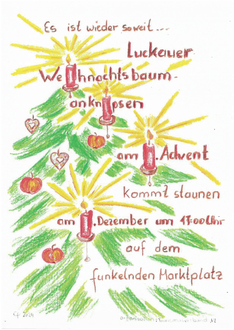 Es ist wieder soweit...
Luckauer
Weihnachtsbaum-
anknipsen
am 1. Advent
kommt staunen
am 1. Dezember um 17.00 Uhr
auf dem
funkelnden Marktplatz